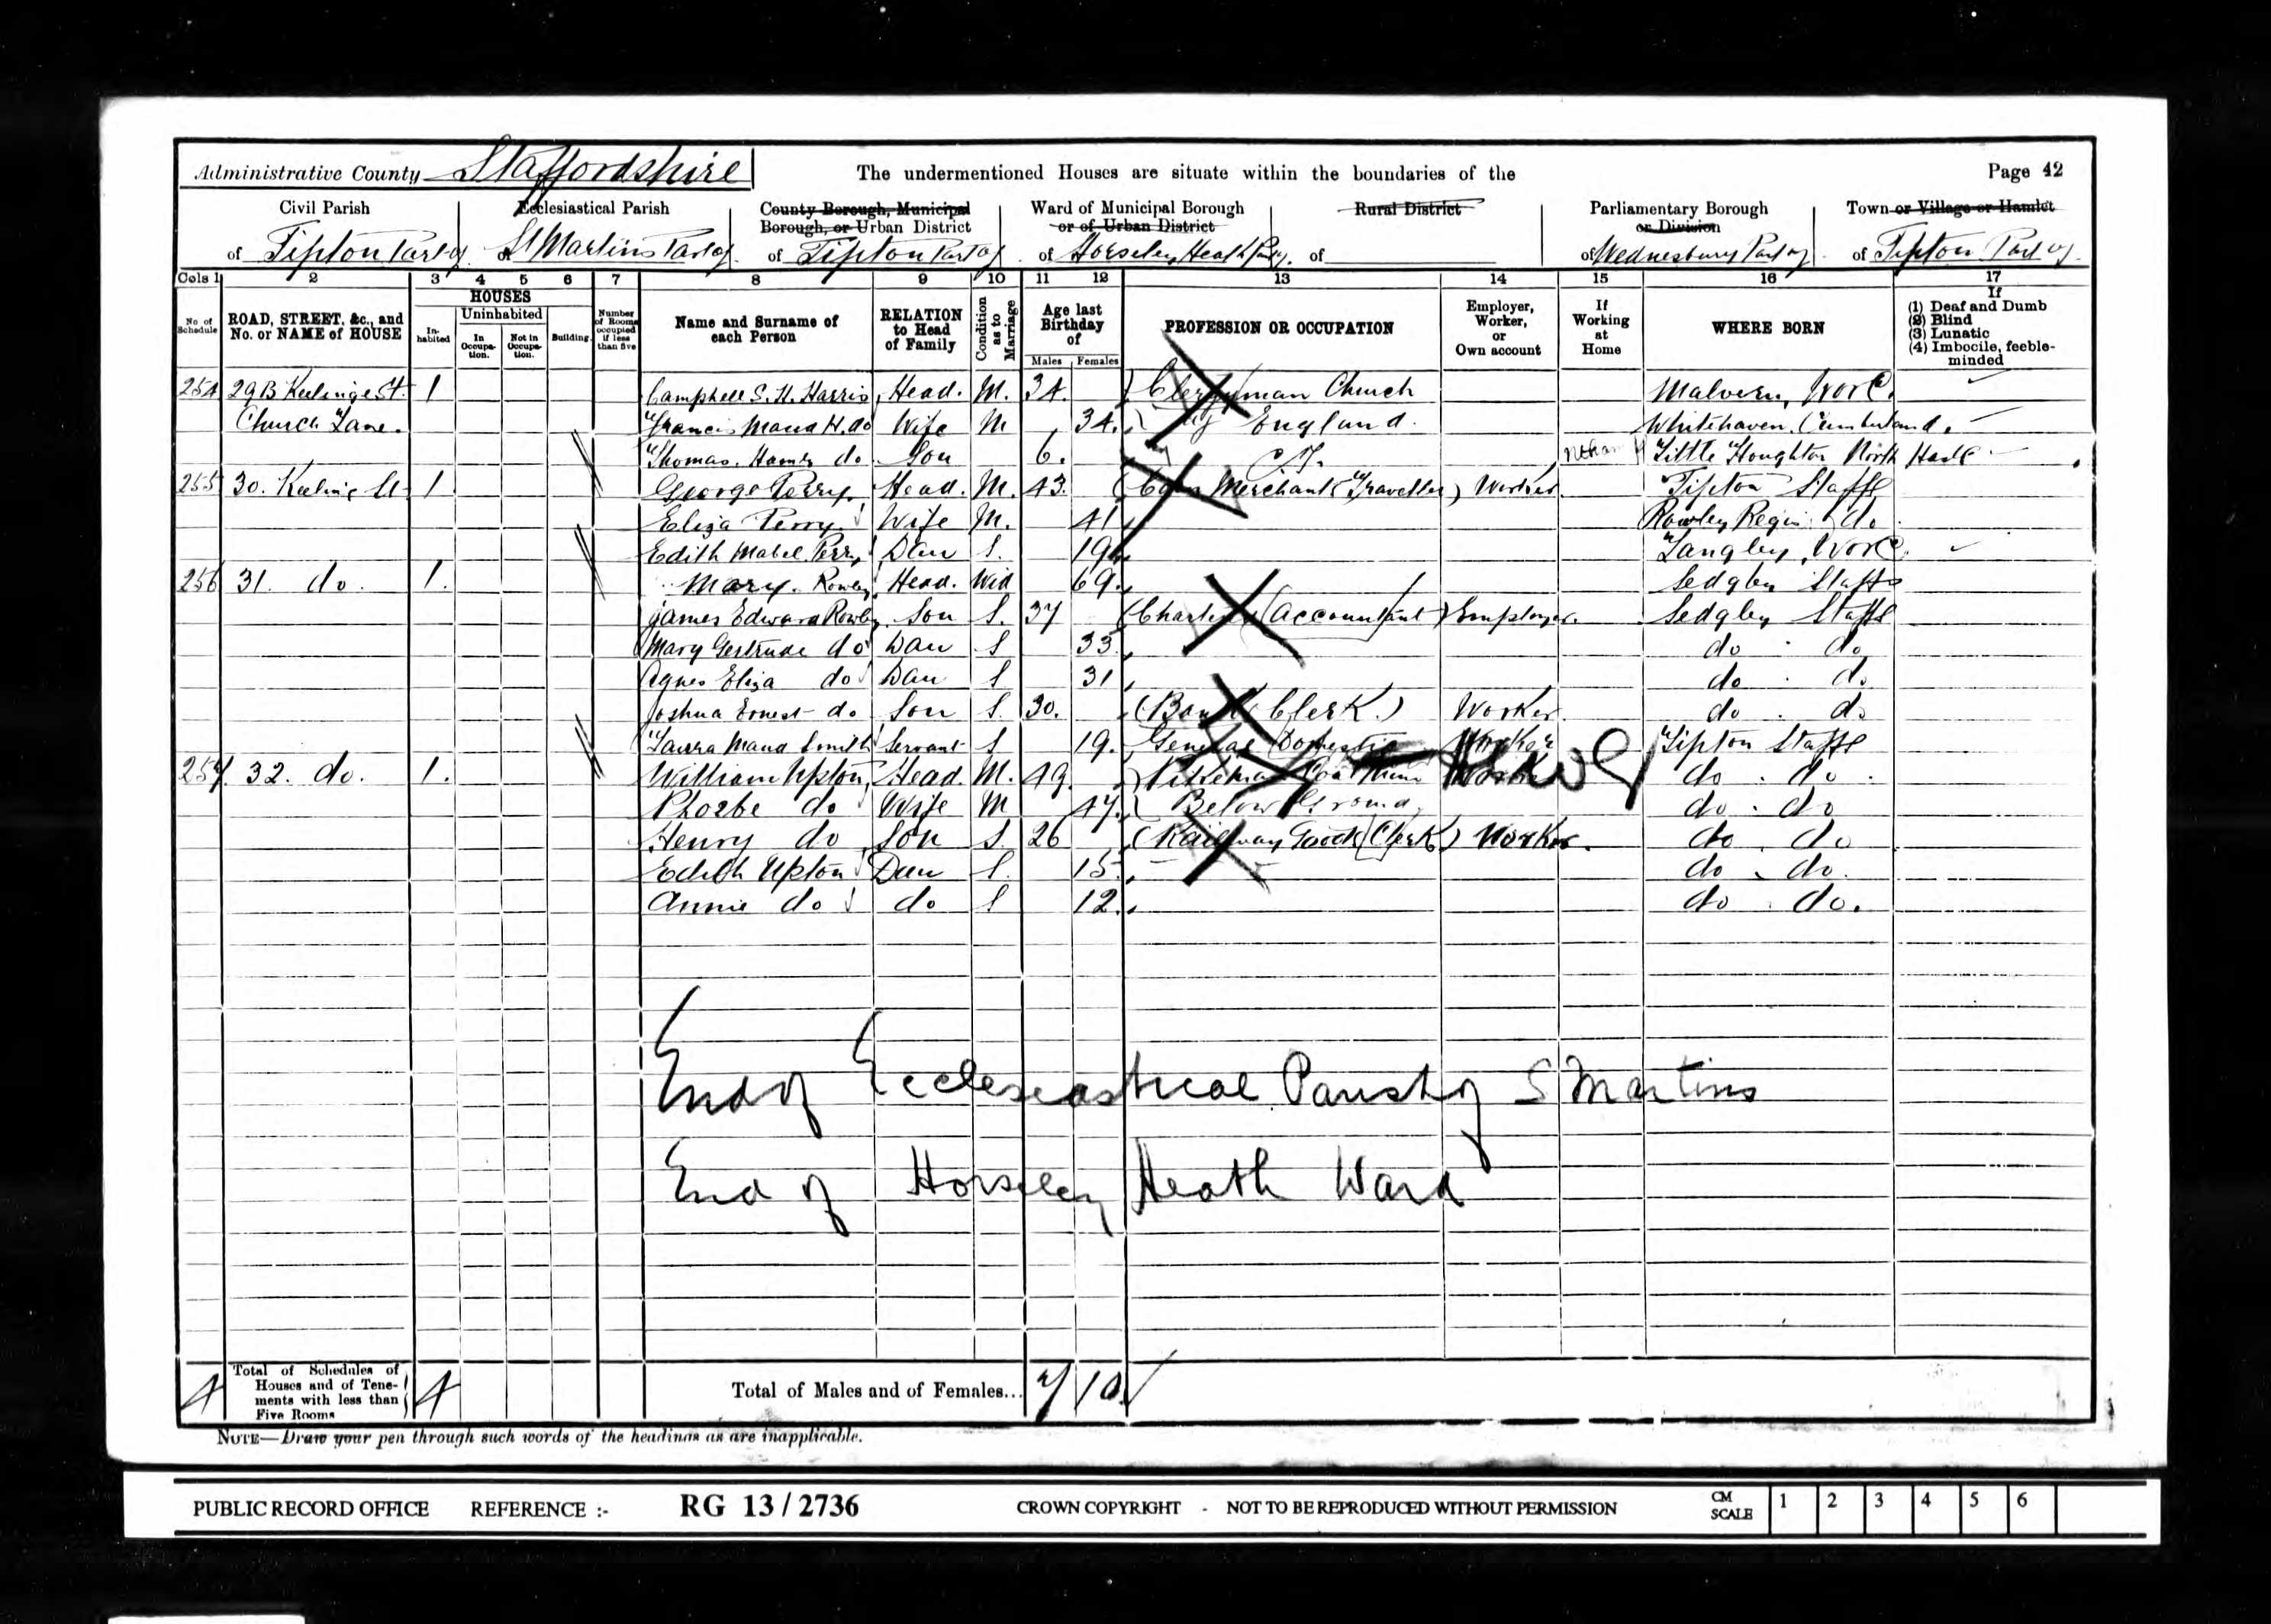 Administrative County Staffordshire The undermentioned Houses are situate within the boundaries of the Page 42
Civil Parish Ecclesiastical Parish County Borough, Municipal Borough, or Urban District Ward of Municipal Borough or of Urban District Rural District Parliamentary Borough or Division Town or Village or Hamlet
of Tipton Part of St Martins Part of of Tipton Part of of Horseley Heath of of Wednesbury Part of of Tipton Part of
Cols 1 2 3 4 5 6 7 8 9 10 11 12 13 14 15 16 17
No of Schedule ROAD, STREET, &c., and No. or NAME of HOUSE HOUSES Inhabited Uninhabited In Occupation. Not in Occupation. Building. Number of Rooms occupied if less than five Name and Surname of each Person RELATION to Head of Family Condition as to Marriage Age last Birthday of Males Females PROFESSION OR OCCUPATION Employer, Worker, or Own account If Working at Home WHERE BORN If (1) Deaf and Dumb (2) Blind (3) Lunatic (4) Imbecile, feeble-minded
254 29B Keelinge St. 1 Campbell S. H. Harris Head. M. 34. Clergyman Church Malvern, Worc
Church Lane. Francis Maud H. do Wife M 34. of England. Whitehaven, Cumberland.
Thomas. do Son 6. Little Houghton North
255 30. Keelinge St 1 George Perry. Head. M. 43. Merchants Traveller) Worker Tipton Staffs
Eliza Perry Wife M. 41 Rowley Regis do.
Edith Mabel Perry Dau S. 19 Langley, Worc
256 31. do. 1. Mary. Rowley Head. Wid 69. Sedgley Staffs
James Edward Rowley Son S. 37 (Chartered (Accountant) Employer. Sedgley Staffs
Mary Gertrude do Dau S 33. do do
Agnes Eliza do Dau S 31 do do
Joshua Ernest do Son S. 30. (Bank Clerk.) Worker do do
Laura Maud Smith Servant S 19. General Domestic Worker Tipton Staffs
257. 32. do. 1. William Upton, Head. M. 49. Coal Mine Worker do do
Phoebe do Wife M 47. Below Ground do do
Henry do Son S. 26 (Railway Goods Clerk) Worker. do do
Edith Upton Dau S. 15. do do.
Annie do do S 12. do do.
End of Ecclesiastical Parish of S Martins
End of Horseley Heath Ward
4 Total of Schedules of Houses and of Tenements with less than Five Rooms 4 Total of Males and of Females... 7 10
NOTE—Draw your pen through such words of the headings as are inapplicable.
PUBLIC RECORD OFFICE REFERENCE :- RG 13 / 2736 CROWN COPYRIGHT - NOT TO BE REPRODUCED WITHOUT PERMISSION CM SCALE 1 2 3 4 5 6